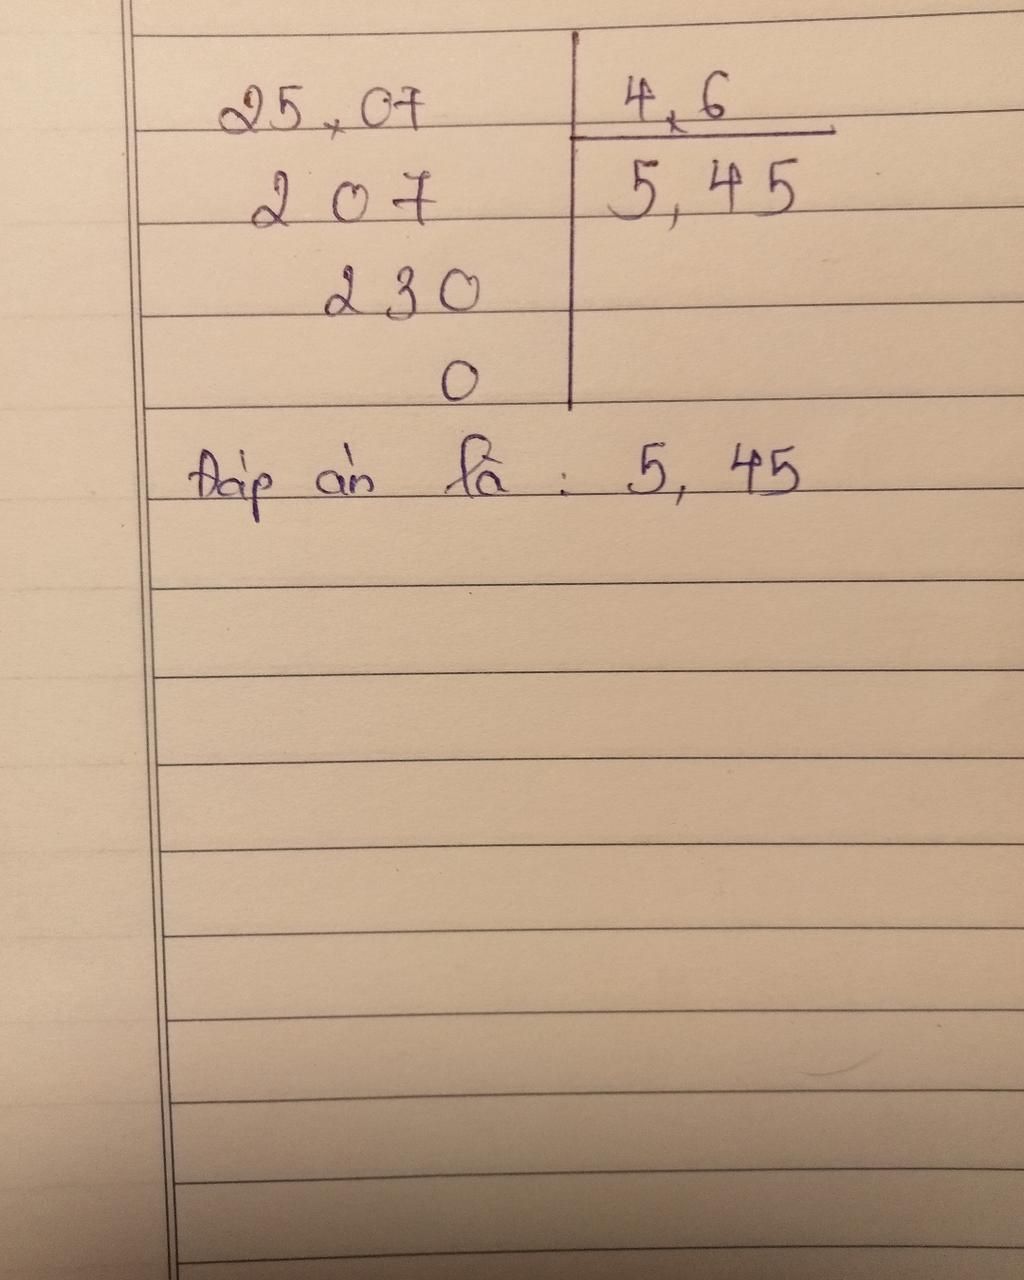 25,07 4,6
207 5,45
230
0
Đáp án là : 5,45